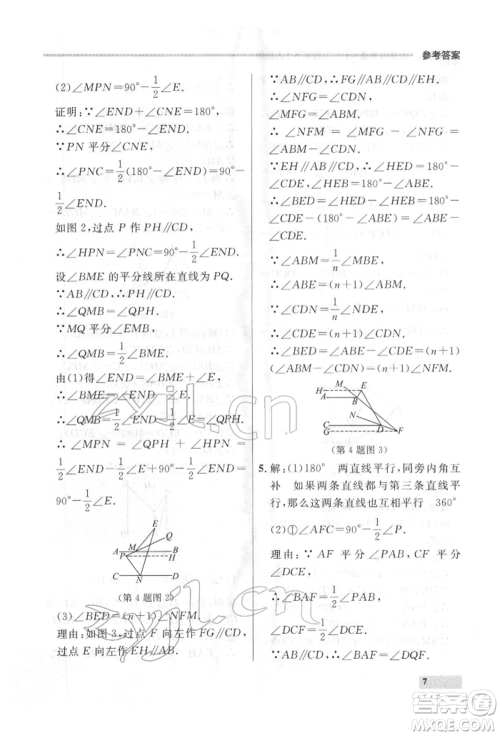 参考答案
(2)∠MPN=90°-1/2∠E.
证明:∵∠END+∠CNE=180°,
∴∠CNE=180°-∠END.
∵PN平分∠CNE,
∴∠PNC=1/2(180°-∠END)=90°-
1/2∠END.
如图2,过点P作PH∥CD,
∴∠HPN=∠PNC=90°-1/2∠END.
设∠BME的平分线所在直线为PQ.
∵AB∥CD,∴PH∥CD.
∴∠QMB=∠QPH.
∵MQ平分∠EMB,
∴∠QMB=1/2∠EMB.
由(1)得∠END=∠E+∠EMB,
∴∠END=∠E+2∠QMB=∠E+2∠QPH
∴1/2∠END=1/2∠E+∠QPH
∴∠MPN=∠QPH+∠HPN=
90°-1/2∠E.
E
A M B
P H
C N D
(第4题图2)
(3)∠BED=(n+1)∠NFM.
理由:如图3,过点F向左作FG∥CD,
过点E向左作EH∥CD,
∵AB∥CD,∴FG∥AB∥CD∥EH.
∴∠GFN=∠CDN,∠MFG=
∠ABM.
∴∠NFM=∠MFG-∠NFG=
∠ABM-∠CDN.
∵EH∥AB∥CD,∴∠HED=
∠CDE,∠HEB=180°-∠ABE.
∴∠BED=∠HED-∠HEB=
∠CDE-(180°-∠ABE).
∵∠ABM=1/n∠MBE,
∴∠ABE=(n+1)∠ABM.
∵∠CDN=1/n∠NDE,
∴∠CDE=(n+1)∠CDN.
∴∠BED=∠ABE-∠CDE=(n+1)·
(∠ABM-∠CDN)=(n+1)∠MFN.
(第4题图3)
5.解:(1)180° 两直线平行,同旁内角互
补 如果两条直线都与第三条直线平
行,那么这两条直线也互相平行 360°
(2)①∠AFC=90°.
理由:∵AF平分∠PAB,CF平分
∠DCE,
∴∠BAF=1/2∠PAB,∠DCF=
1/2∠DCE.
∵AB∥CD,
∴∠BAF=∠DQF.
7
答案圈
zyjl.cn